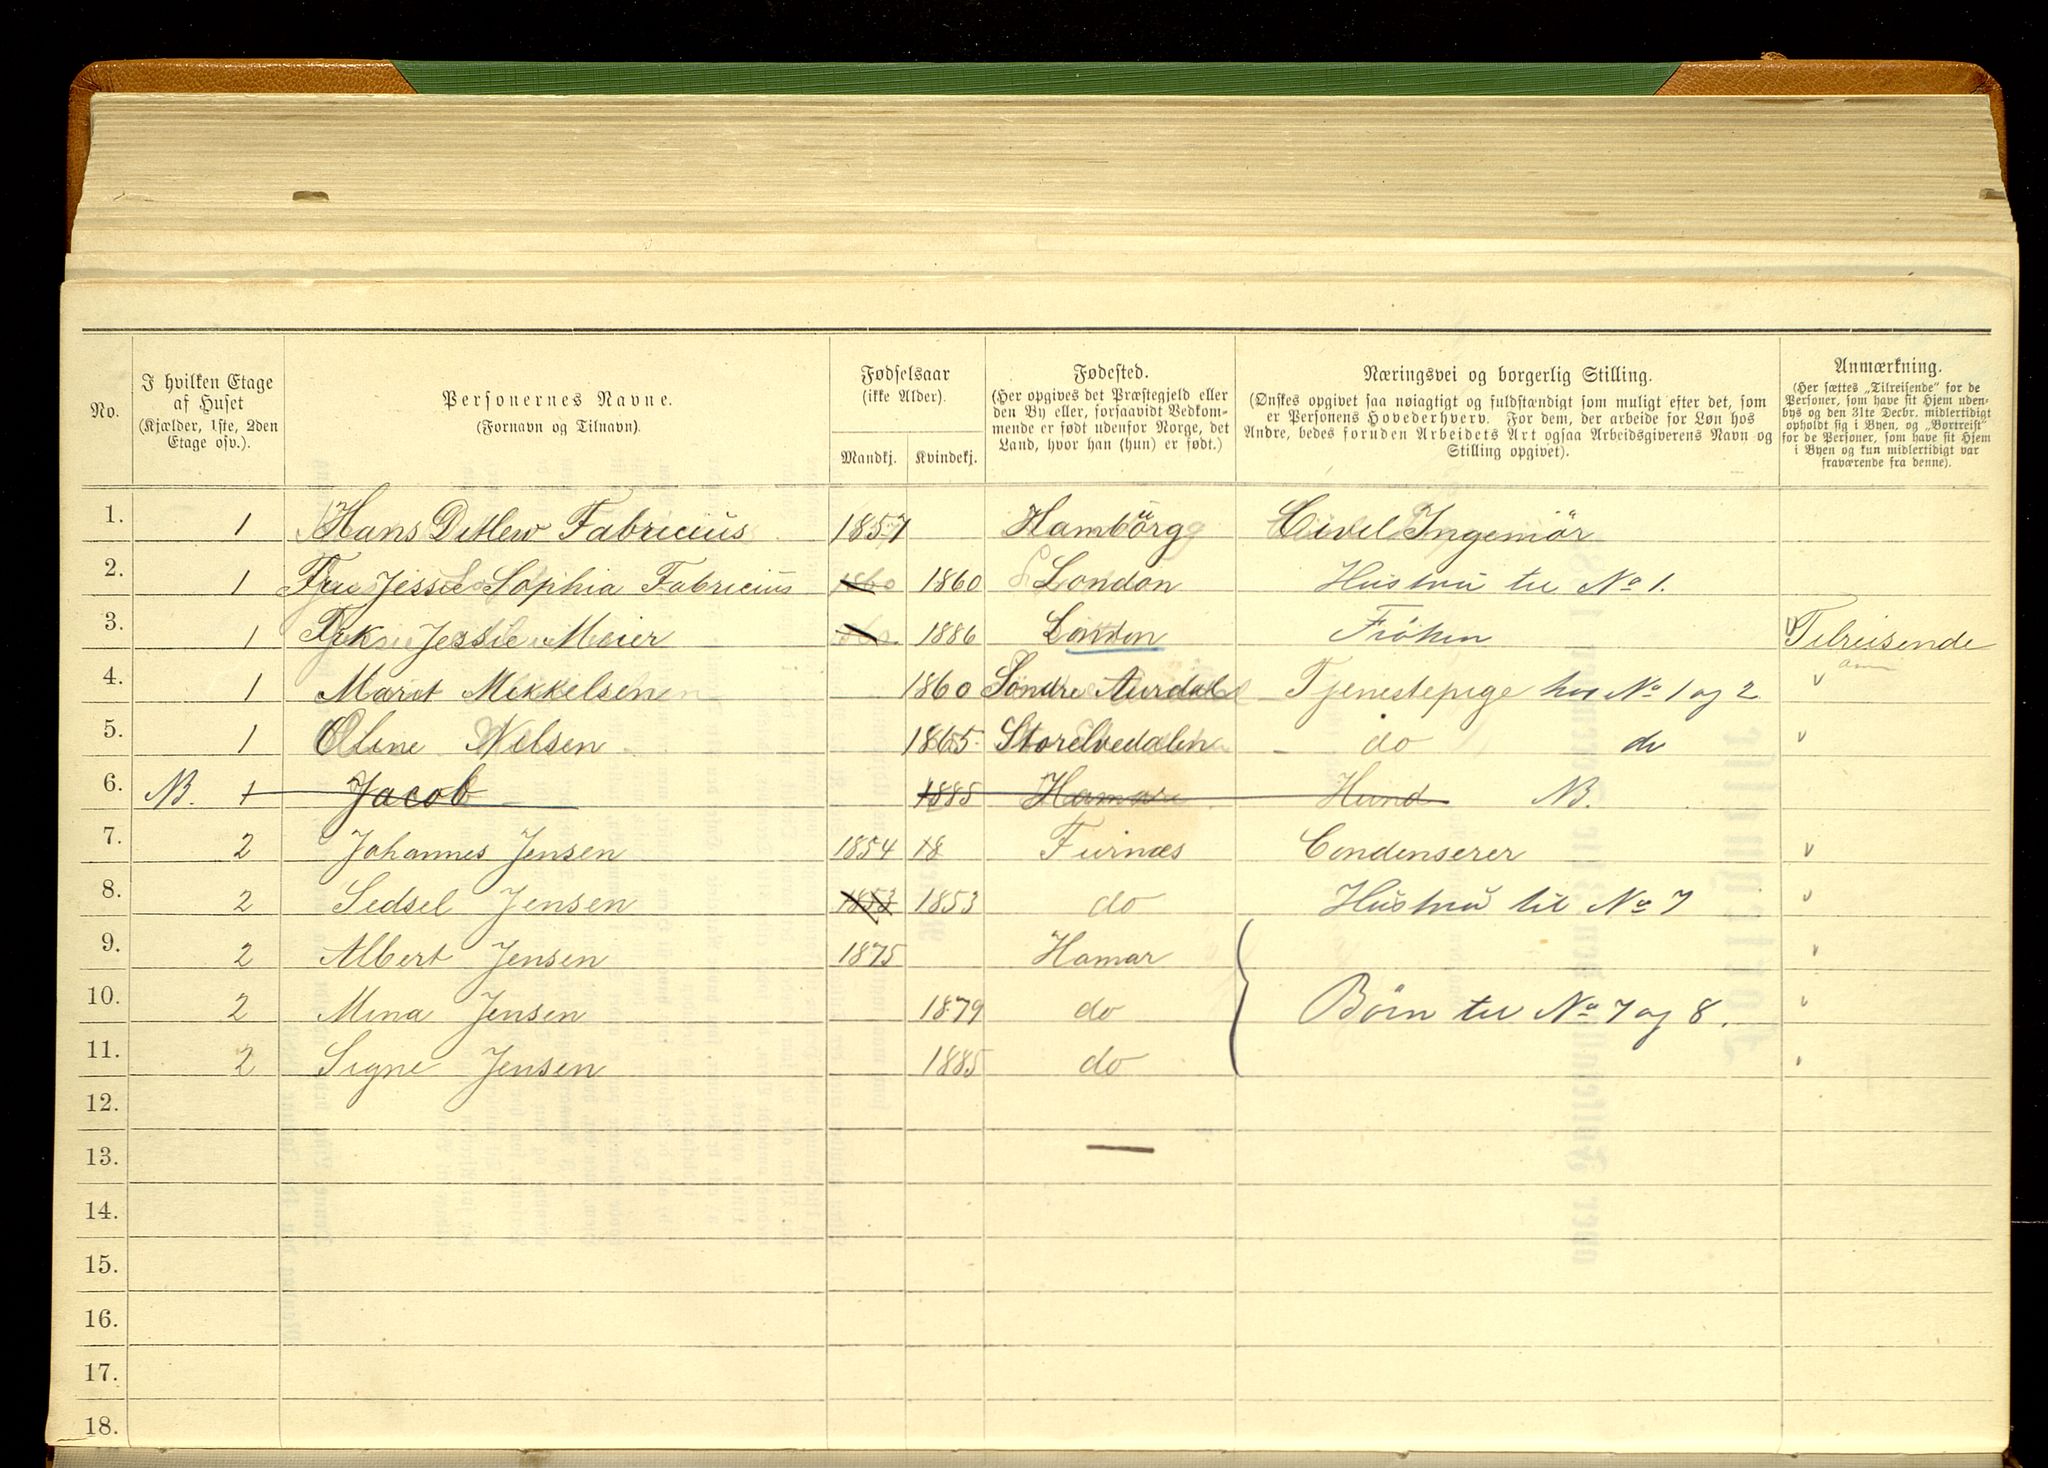 No.
I hvilken Etage
af Huset
(Kjælder, 1ste, 2den
Etage osv.).
Personernes Navne.
(Fornavn og Tilnavn).
Fødselsaar
(ikke Alder).
Mandkj.
Kvindekj.
Fødested.
(Her opgives det Præstegjeld eller
den By eller, forsaavidt Vedkom-
mende er født udenfor Norge, det
Land, hvor han (hun) er født.)
Næringsvei og borgerlig Stilling.
(Ønskes opgivet saa nøiagtigt og fuldstændigt som muligt efter det, som
er Personens Hovederhverv. For dem, der arbeide for Løn hos
Andre, bedes foruden Arbeidets Art ogsaa Arbeidsgiverens Navn og
Stilling opgivet).
Anmærkning.
(Her sættes „Tilreisende" for de
Personer, som have sit Hjem uden-
bys og den 31te Decbr. midlertidigt
opholdt sig i Byen, og „Bortreist"
for de Personer, som have sit Hjem
i Byen og kun midlertidigt var
fraværende fra denne).
1. 1 Hans Ditlew Fabricius 1857 Hambürg Civel Ingeniör
2. 1 Fru Jessie Sophia Fabricius 1860 1860 London Hustru til No 1.
3. 1 Frk Jessie Meier 1886 London Fröken Tilreisende
4. 1 Marit Mikkelsen 1860 Söndre Aurdal Tjenestepige hos No 1 og 2
5. 1 Oline Nilsen 1865 Storelvedalen do do
6. NB. 1 Jacob 1885 Hamar Hund NB.
7. 2 Johannes Jensen 1854 18 Furnæs Condenserer
8. 2 Sedsel Jensen 1853 1853 do Hustru til No 7
9. 2 Albert Jensen 1875 Hamar
10. 2 Mina Jensen 1879 do Börn til No 7 og 8.
11. 2 Signe Jensen 1885 do
12.
13.
14.
15.
16.
17.
18.